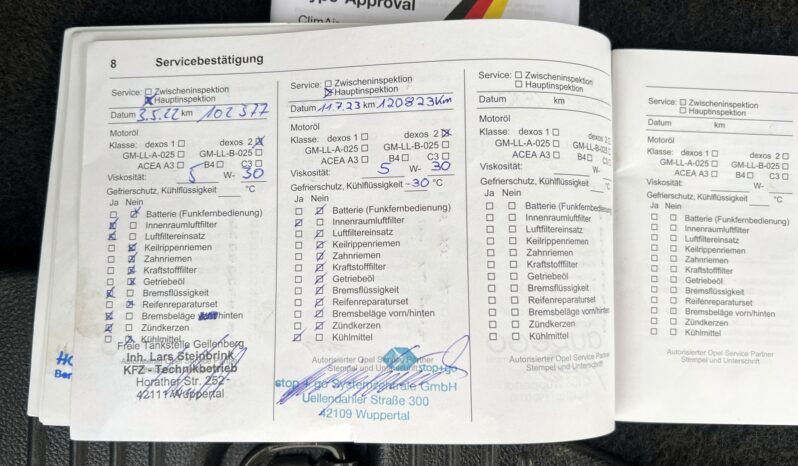 Type Approval
ClimAir
8 Servicebestätigung
Service: ☐ Zwischeninspektion
☒ Hauptinspektion
Datum 3.5.22 km 102377
Motoröl
Klasse: dexos 1 ☐ dexos 2 ☒
GM-LL-A-025 ☐ GM-LL-B-025 ☐
ACEA A3 ☐ B4 ☐ C3 ☐
Viskosität: 5 W- 30
Gefrierschutz, Kühlflüssigkeit °C
Ja Nein
☐ ☒ Batterie (Funkfernbedienung)
☒ ☐ Innenraumluftfilter
☒ ☐ Luftfiltereinsatz
☐ ☒ Keilrippenriemen
☐ ☒ Zahnriemen
☐ ☒ Kraftstofffilter
☐ ☒ Getriebeöl
☒ ☐ Bremsflüssigkeit
☐ ☒ Reifenreparaturset
☒ ☐ Bremsbeläge vorn/hinten
☒ ☐ Zündkerzen
☐ ☒ Kühlmittel
Freie Tankstelle Geilenberg
Inh. Lars Steinbrink
KFZ - Technikbetrieb
Horather Str. 252
42111 Wuppertal
Service: ☐ Zwischeninspektion
☒ Hauptinspektion
Datum 11.7.23 km 120823Km
Motoröl
Klasse: dexos 1 ☐ dexos 2 ☒
GM-LL-A-025 ☐ GM-LL-B-025 ☐
ACEA A3 ☐ B4 ☐ C3 ☐
Viskosität: 5 W- 30
Gefrierschutz, Kühlflüssigkeit -30 °C
Ja Nein
☐ ☒ Batterie (Funkfernbedienung)
☒ ☐ Innenraumluftfilter
☐ ☒ Luftfiltereinsatz
☐ ☒ Keilrippenriemen
☐ ☒ Zahnriemen
☐ ☒ Kraftstofffilter
☐ ☒ Getriebeöl
☐ ☒ Bremsflüssigkeit
☐ ☒ Reifenreparaturset
☐ ☒ Bremsbeläge vorn/hinten
☐ ☒ Zündkerzen
☒ ☐ Kühlmittel
Autorisierter Opel Service Partner
Stempel und Unterschrift
stop+go
stop + go Systemzentrale GmbH
Uellendahler Straße 300
42109 Wuppertal
Service: ☐ Zwischeninspektion
☐ Hauptinspektion
Datum km
Motoröl
Klasse: dexos 1 ☐ dexos 2
GM-LL-A-025 ☐ GM-LL-B-025 ☐
ACEA A3 ☐ B4 ☐ C3 ☐
Viskosität: W-
Gefrierschutz, Kühlflüssigkeit °C
Ja Nein
☐ ☐ Batterie (Funkfernbedienung)
☐ ☐ Innenraumluftfilter
☐ ☐ Luftfiltereinsatz
☐ ☐ Keilrippenriemen
☐ ☐ Zahnriemen
☐ ☐ Kraftstofffilter
☐ ☐ Getriebeöl
☐ ☐ Bremsflüssigkeit
☐ ☐ Reifenreparaturset
☐ ☐ Bremsbeläge vorn/hinten
☐ ☐ Zündkerzen
☐ ☐ Kühlmittel
Autorisierter Opel Service Partner
Stempel und Unterschrift
Service: ☐ Zwischeninspektion
☐ Hauptinspektion
Datum km
Motoröl
Klasse: dexos 1 ☐ dexos 2 ☐
GM-LL-A-025 ☐ GM-LL-B-025 ☐
ACEA A3 ☐ B4 ☐ C3 ☐
Viskosität: W-
Gefrierschutz, Kühlflüssigkeit °C
Ja Nein
☐ ☐ Batterie (Funkfernbedienung)
☐ ☐ Innenraumluftfilter
☐ ☐ Luftfiltereinsatz
☐ ☐ Keilrippenriemen
☐ ☐ Zahnriemen
☐ ☐ Kraftstofffilter
☐ ☐ Getriebeöl
☐ ☐ Bremsflüssigkeit
☐ ☐ Reifenreparaturset
☐ ☐ Bremsbeläge vorn/hinten
☐ ☐ Zündkerzen
☐ ☐ Kühlmittel
Autorisierter Opel Service Partner
Stempel und Unterschrift